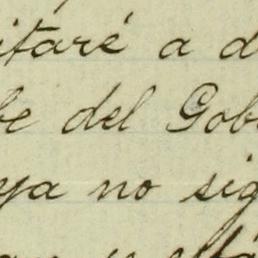 itaré a d
be del Gob
ya no sig